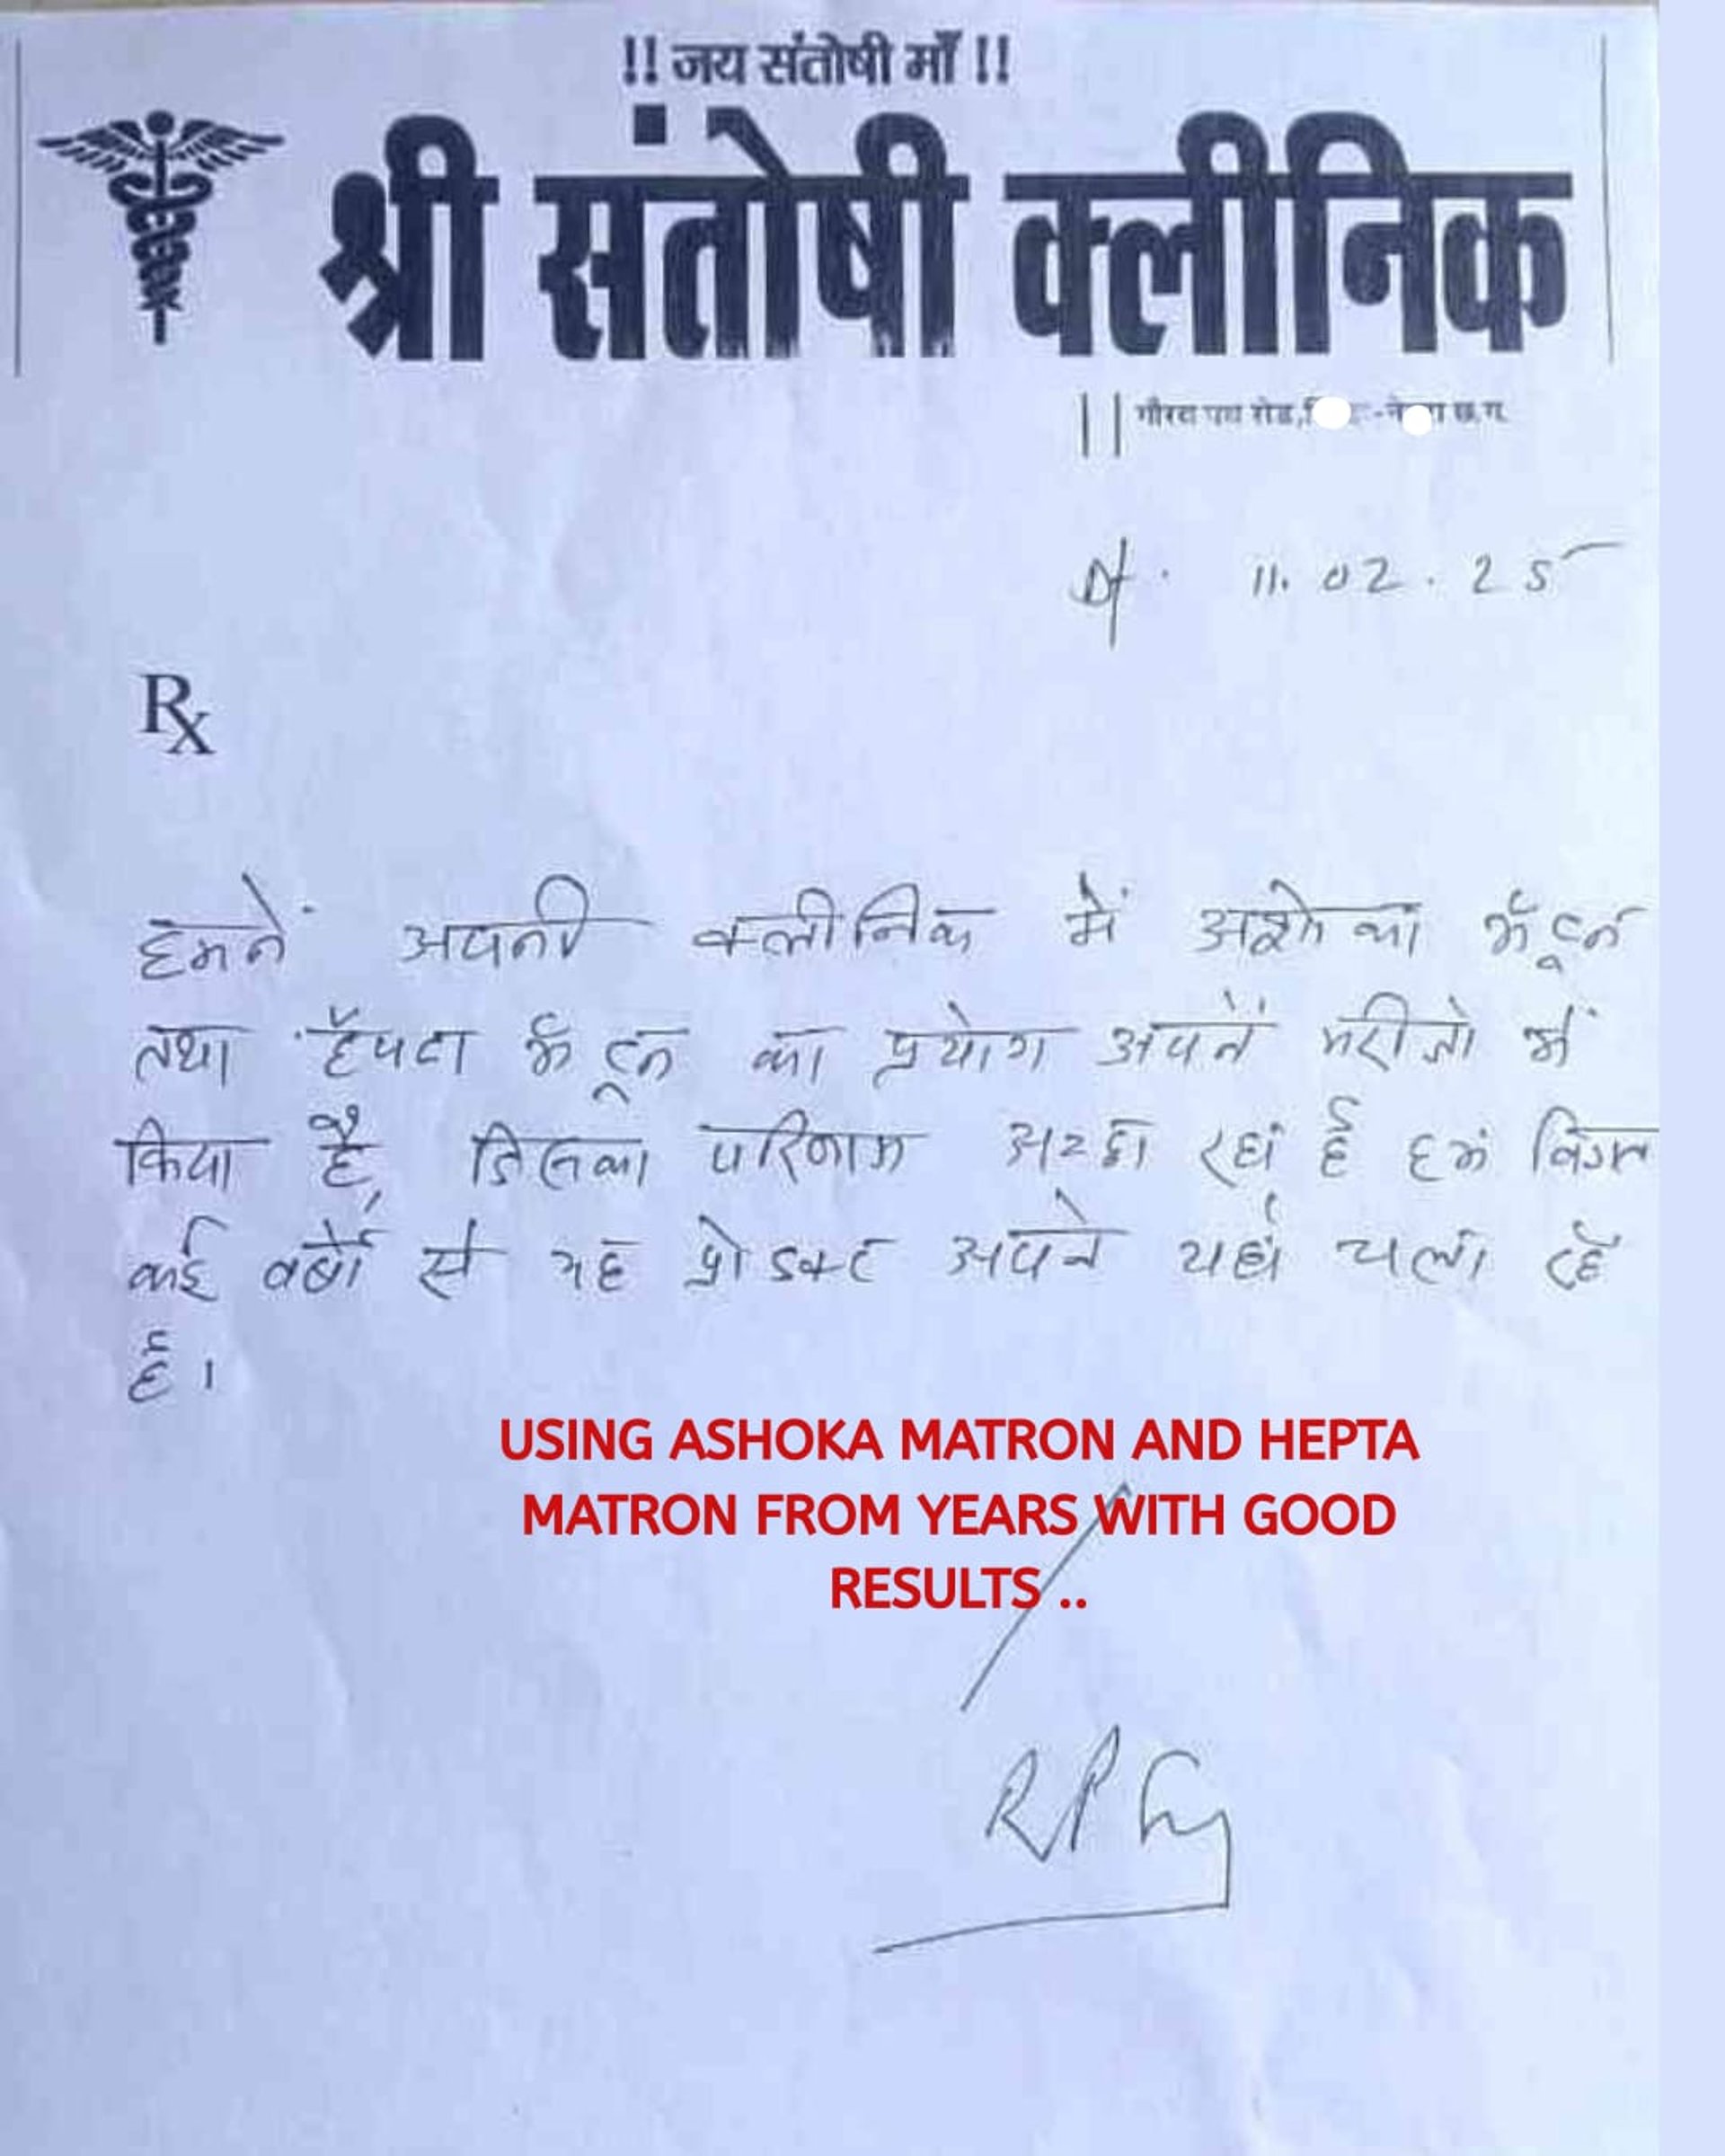 !! जय संतोषी माँ !!
श्री संतोषी क्लीनिक
गौरव पथ रोड, छ.ग.
Dt. 11.02.25
Rx
हमनें अपनी क्लीनिक में अशोका मैट्रन
तथा हैपटा मैट्रन का प्रयोग अपनें मरीजो में
किया है, जिसका परिणाम अच्छा रहा है हमं विगत
कई वर्षो से यह प्रोडक्ट अपने यहां चला रहे
है।
USING ASHOKA MATRON AND HEPTA
MATRON FROM YEARS WITH GOOD
RESULTS ..